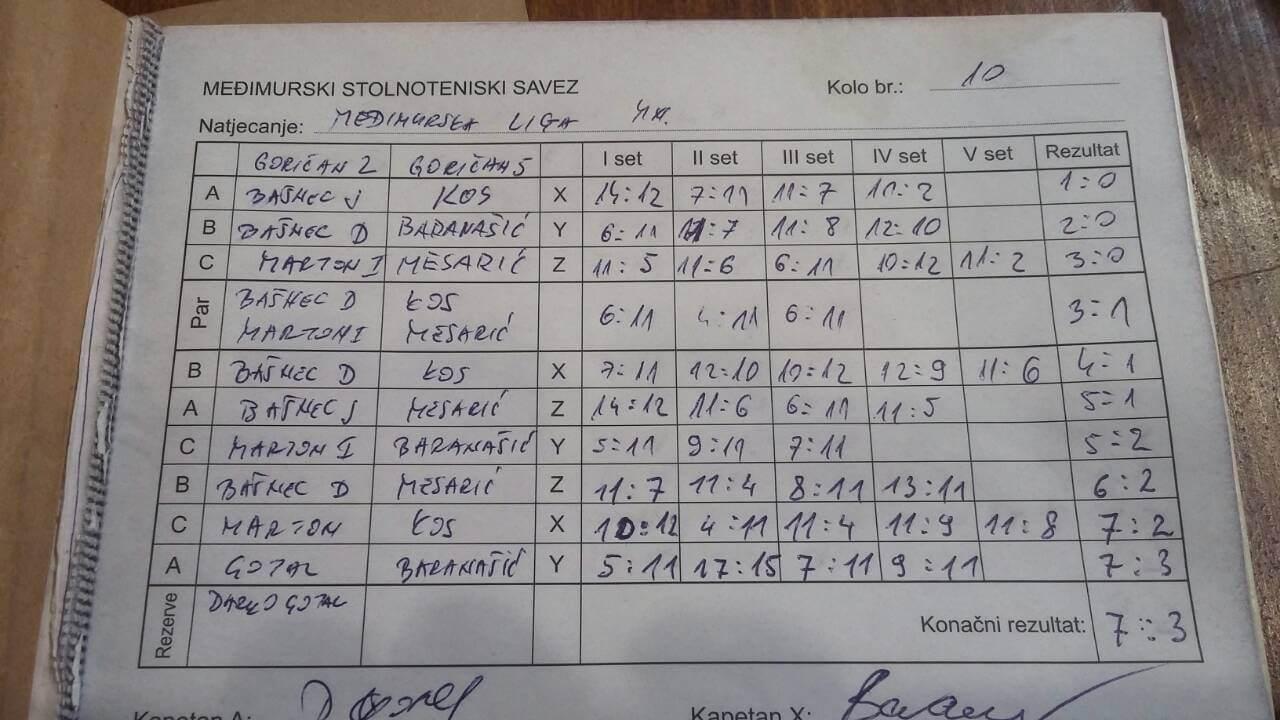 MEĐIMURSKI STOLNOTENISKI SAVEZ Kolo br.: 10
Natjecanje: MEĐIMURSKA LIGA
GORIČAN 2 GORIČAN 5 I set II set III set IV set V set Rezultat
A BAŠNEC J KOS X 14:12 7:11 11:7 11:2 1:0
B BAŠNEC D BARANAŠIĆ Y 6:11 11:7 11:8 12:10 2:0
C MARTON I MESARIĆ Z 11:5 11:6 6:11 10:12 11:2 3:0
Par BAŠNEC D KOS 6:11 4:11 6:11 3:1
MARTON I MESARIĆ
B BAŠNEC D KOS X 7:11 12:10 10:12 12:9 11:6 4:1
A BAŠNEC J MESARIĆ Z 14:12 11:6 6:11 11:5 5:1
C MARTON I BARANAŠIĆ Y 5:11 9:11 7:11 5:2
B BAŠNEC D MESARIĆ Z 11:7 11:4 8:11 13:11 6:2
C MARTON KOS X 10:12 4:11 11:4 11:9 11:8 7:2
A GOTAL BARANAŠIĆ Y 5:11 17:15 7:11 9:11 7:3
Rezerve DARKO GOTAL Konačni rezultat: 7:3
Kapetan A: Kapetan X: